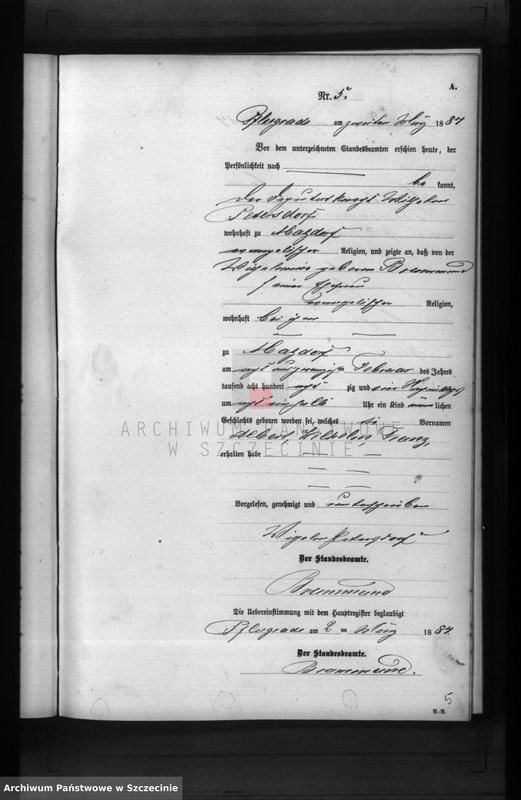 A.
Nr. 5.
Pflugrade am zweiten März 1884
Vor dem unterzeichneten Standesbeamten erschien heute, der
Persönlichkeit nach
be kannt,
der Deputatknecht Wilhelm
Petersdorf
wohnhaft zu Matzdorf
evangelischer Religion, und zeigte an, daß von der
Wilhelmine geborene Bremmund
seiner Ehefrau
evangelischer Religion,
wohnhaft bei ihm
zu Matzdorf
am acht und zwanzigsten Februar des Jahres
tausend acht hundert acht zig und vier
um acht ein halb Uhr ein Kind männ lichen
Geschlechts geboren worden sei, welches die Vornamen
Albert Wilhelm Franz
erhalten habe
Vorgelesen, genehmigt und unterschrieben
Wilhelm Petersdorf
Der Standesbeamte.
Bremmund
Die Uebereinstimmung mit dem Hauptregister beglaubigt
Pflugrade am 2 ten März 1884.
Der Standesbeamte.
Bremmund.
5
R.-R.
ARCHIWUM PAŃSTWOWE
W SZCZECINIE
Archiwum Państwowe w Szczecinie